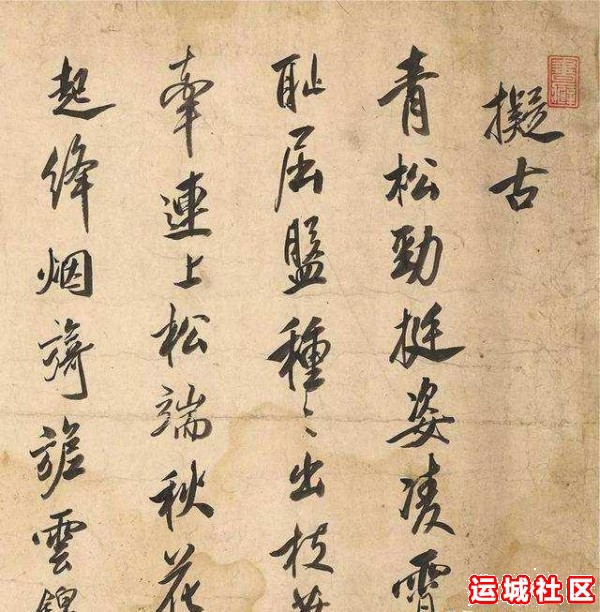 擬古
青松勁挺姿凌霄
耻屈盤種〻出枝葉
牽連上松端秋花
起絳烟旖旎雲錦
运城社区